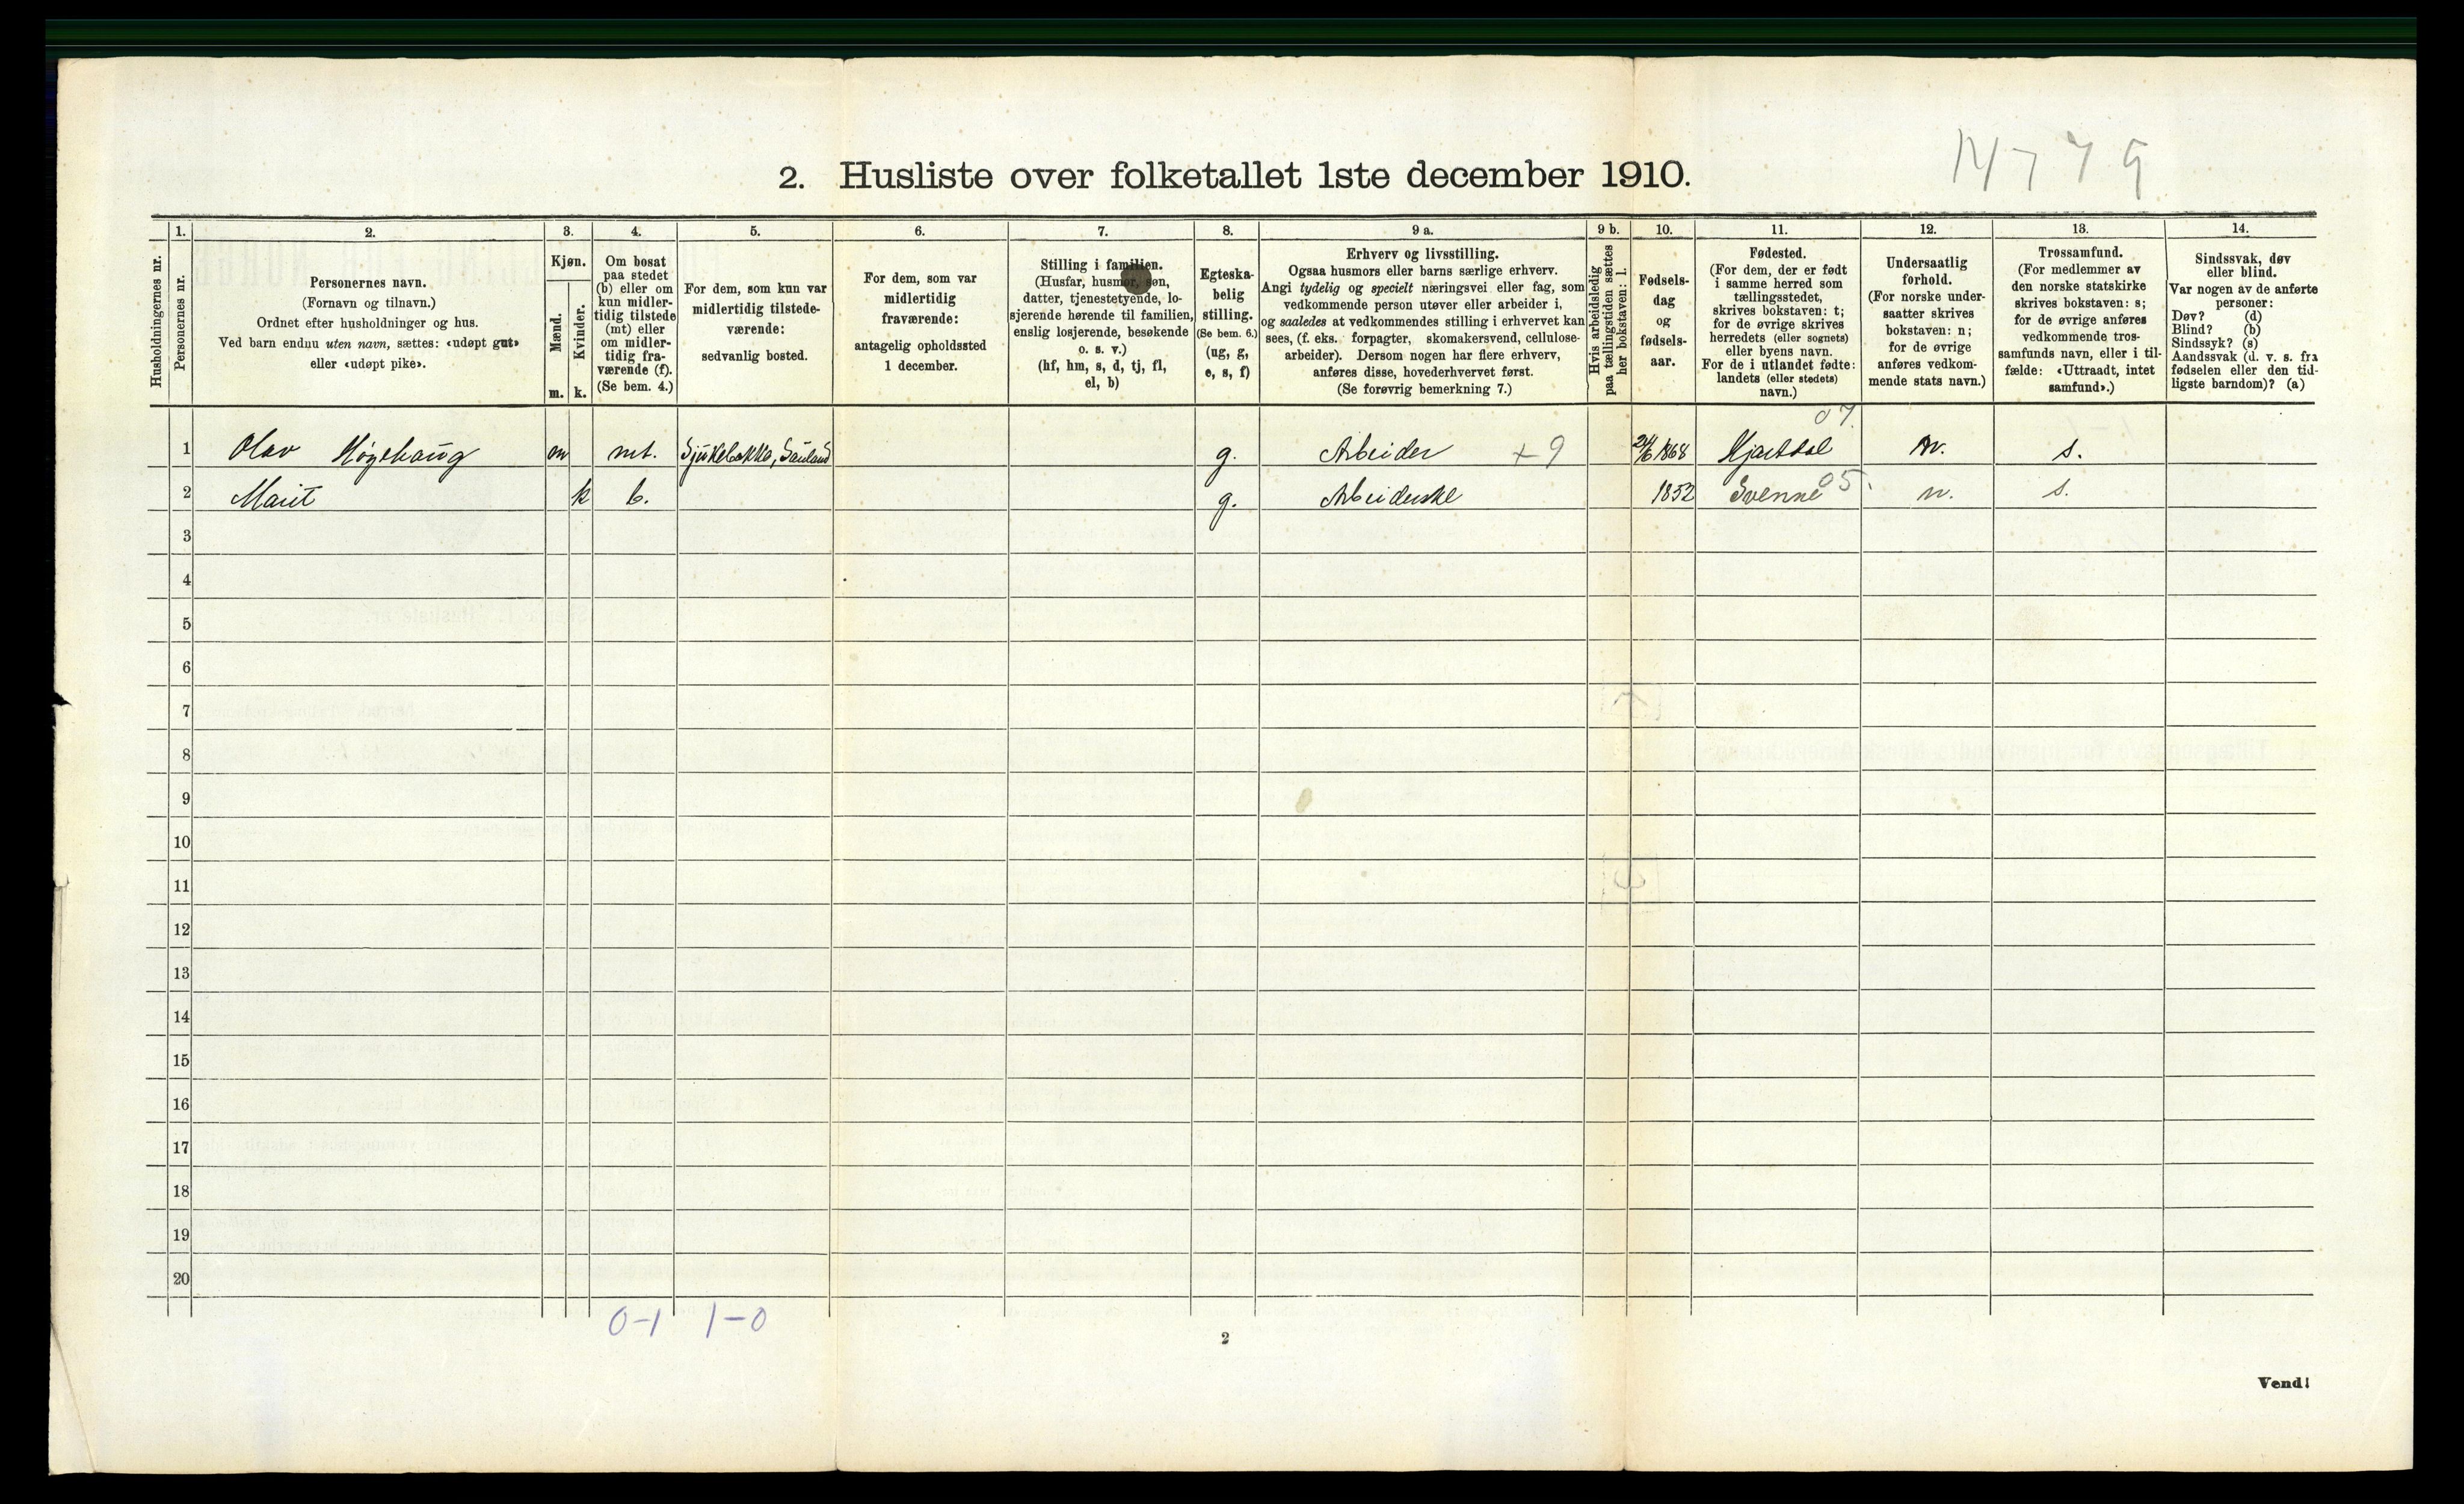 2. Husliste over folketallet 1ste december 1910.
1. 2. 3. 4. 5. 6. 7. 8. 9 a. 9 b. 10. 11. 12. 13. 14.
Husholdningernes nr.
Personernes nr.
Personernes navn.
(Fornavn og tilnavn.)
Ordnet efter husholdninger og hus.
Ved barn endnu uten navn, sættes: «udøpt gut»
eller «udøpt pike».
Kjøn.
Mænd.
Kvinder.
m. k.
Om bosat
paa stedet
(b) eller om
kun midler-
tidig tilstede
(mt) eller
om midler-
tidig fra-
værende (f).
(Se bem. 4.)
For dem, som kun var
midlertidig tilstede-
værende:
sedvanlig bosted.
For dem, som var
midlertidig
fraværende:
antagelig opholdssted
1 december.
Stilling i familien.
(Husfar, husmor, søn,
datter, tjenestetyende, lo-
sjerende hørende til familien,
enslig losjerende, besøkende
o. s. v.)
(hf, hm, s, d, tj, fl,
el, b)
Egteska-
belig
stilling.
(Se bem. 6.)
(ug, g,
e, s, f)
Erhverv og livsstilling.
Ogsaa husmors eller barns særlige erhverv.
Angi tydelig og specielt næringsvei eller fag, som
vedkommende person utøver eller arbeider i,
og saaledes at vedkommendes stilling i erhvervet kan
sees, (f. eks. forpagter, skomakersvend, cellulose-
arbeider). Dersom nogen har flere erhverv,
anføres disse, hovederhvervet først.
(Se forøvrig bemerkning 7.)
Hvis arbeidsledig
paa tællingstiden sættes
her bokstaven: l.
Fødsels-
dag
og
fødsels-
aar.
Fødested.
(For dem, der er født
i samme herred som
tællingsstedet,
skrives bokstaven: t;
for de øvrige skrives
herredets (eller sognets)
eller byens navn.
For de i utlandet fødte:
landets (eller stedets)
navn.)
Undersaatlig
forhold.
(For norske under-
saatter skrives
bokstaven: n;
for de øvrige
anføres vedkom-
mende stats navn.)
Trossamfund.
(For medlemmer av
den norske statskirke
skrives bokstaven: s;
for de øvrige anføres
vedkommende tros-
samfunds navn, eller i til-
fælde: «Uttraadt, intet
samfund».)
Sindssvak, døv
eller blind.
Var nogen av de anførte
personer:
Døv? (d)
Blind? (b)
Sindssyk? (s)
Aandssvak (d. v. s. fra
fødselen eller den tid-
ligste barndom)? (a)
07.
1 Olav Høgehaug m mt. Sjukebakka, Sauland g. Arbeider + 9 24/6 1868 Hjartdal n. s.
2 Marit k b. g. Arbeiderske 1852 Svenne 05. n. s.
3
4
5
6
7
8
9
10
11
12
13
14
15
16
17
18
19
20
0-1 1-0
2
Vend!